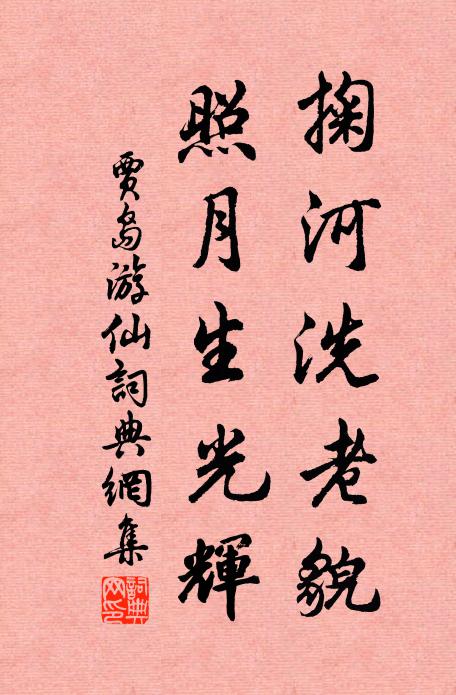 掬河洗老貌
照月生光輝
賈島游仙詞典網集
詞典網印